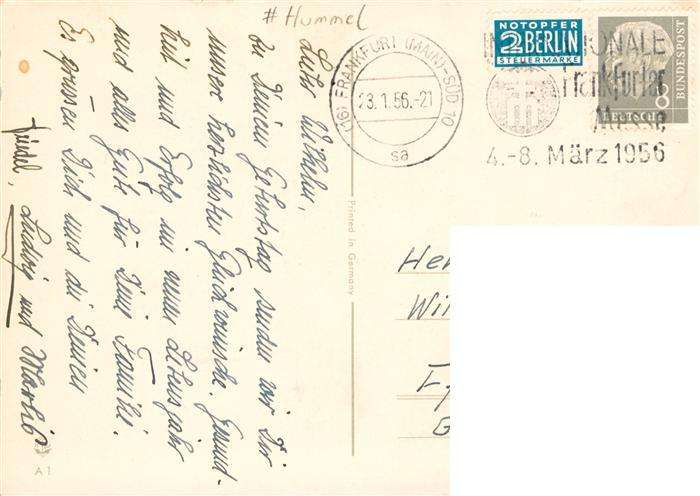 # Hummel
(16) FRANKFURT (MAIN)-SÜD 10
23.1.56.-21
sa
NOTOPFER
2 BERLIN
STEUERMARKE
DEUTSCHE
BUNDESPOST
8
INTERNATIONALE
Frankfurter
Messe
4.-8. März 1956
Lieber Wilhelm,
zu Deinem Geburtstag senden wir Dir
unsere herzlichsten Glückwünsche. Gesund-
heit und Erfolg im neuen Lebensjahr
und alles Gute für Deine Familie.
Es grüssen Dich und die Deinen
Ludwig und
Printed in Germany
A 1
Her
Wil
F
G